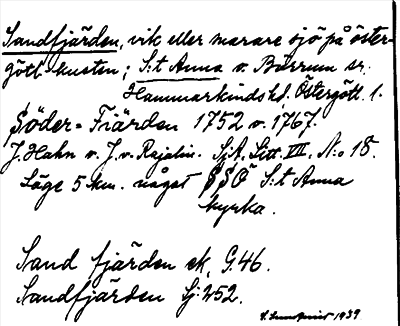 Sandfjärden, vik eller snarare sjö på öster-
götl. kusten; S:t Anna o. Börrum sr.
Hammarkinds hd, Östergötl. l.
Söder-Fiärden 1752 o. 1767.
J. Hahn o. J. v. Rajalin. SjA. Litt. VII. N:o 18.
Läge 5 km. något SSÖ S:t Anna
kyrka.
Sand fjärden ek, G.46.
Sandfjärden Sj:252.
1939